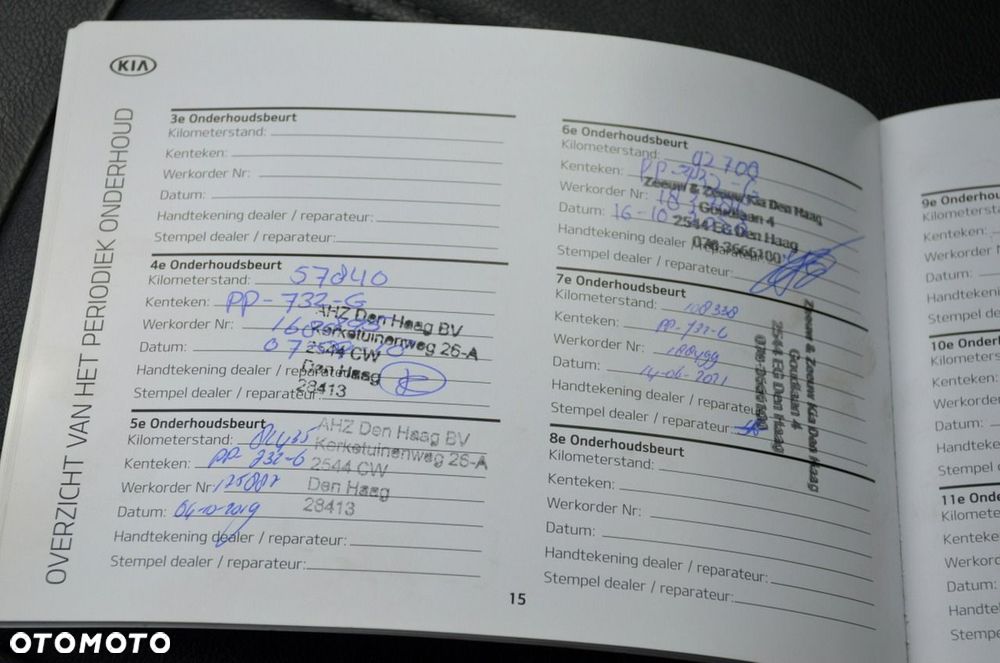 KIA
OVERZICHT VAN HET PERIODIEK ONDERHOUD
3e Onderhoudsbeurt
Kilometerstand:
Kenteken:
Werkorder Nr:
Datum:
Handtekening dealer / reparateur:
Stempel dealer / reparateur:
4e Onderhoudsbeurt
Kilometerstand: 57840
Kenteken: PP-732-G
Werkorder Nr:
Datum:
Handtekening dealer / reparateur:
Stempel dealer / reparateur:
AHZ Den Haag BV
Kerketuinenweg 26-A
2544 CW
Den Haag
28413
5e Onderhoudsbeurt
Kilometerstand:
Kenteken: PP-732-G
Werkorder Nr:
Datum: 04-10-2019
Handtekening dealer / reparateur:
Stempel dealer / reparateur:
AHZ Den Haag BV
Kerketuinenweg 26-A
2544 CW
Den Haag
28413
6e Onderhoudsbeurt
Kilometerstand: 92700
Kenteken: PP-732-G
Werkorder Nr:
Datum: 16-10-
Handtekening dealer / reparateur:
Stempel dealer / reparateur:
Zeeuw & Zeeuw Kia Den Haag
Goudlaan 4
2544 EG Den Haag
070 3666100
7e Onderhoudsbeurt
Kilometerstand: 108338
Kenteken: PP-732-G
Werkorder Nr: 188499
Datum: 14-06-2021
Handtekening dealer / reparateur:
Stempel dealer / reparateur:
Zeeuw & Zeeuw Kia Den Haag
Goudlaan 4
2544 EG Den Haag
070-3666100
8e Onderhoudsbeurt
Kilometerstand:
Kenteken:
Werkorder Nr:
Datum:
Handtekening dealer / reparateur:
Stempel dealer / reparateur:
15
9e Onde
Kilometers
Kenteken:
Werkorder
Datum:
Handtekeni
Stempel de
10e Onde
Kilometers
Kenteken:
Werkorde
Datum:
Handteke
Stempel d
11e Onde
Kilomete
Kenteke
Werkord
Datum:
Handte
Stempe
OTOMOTO